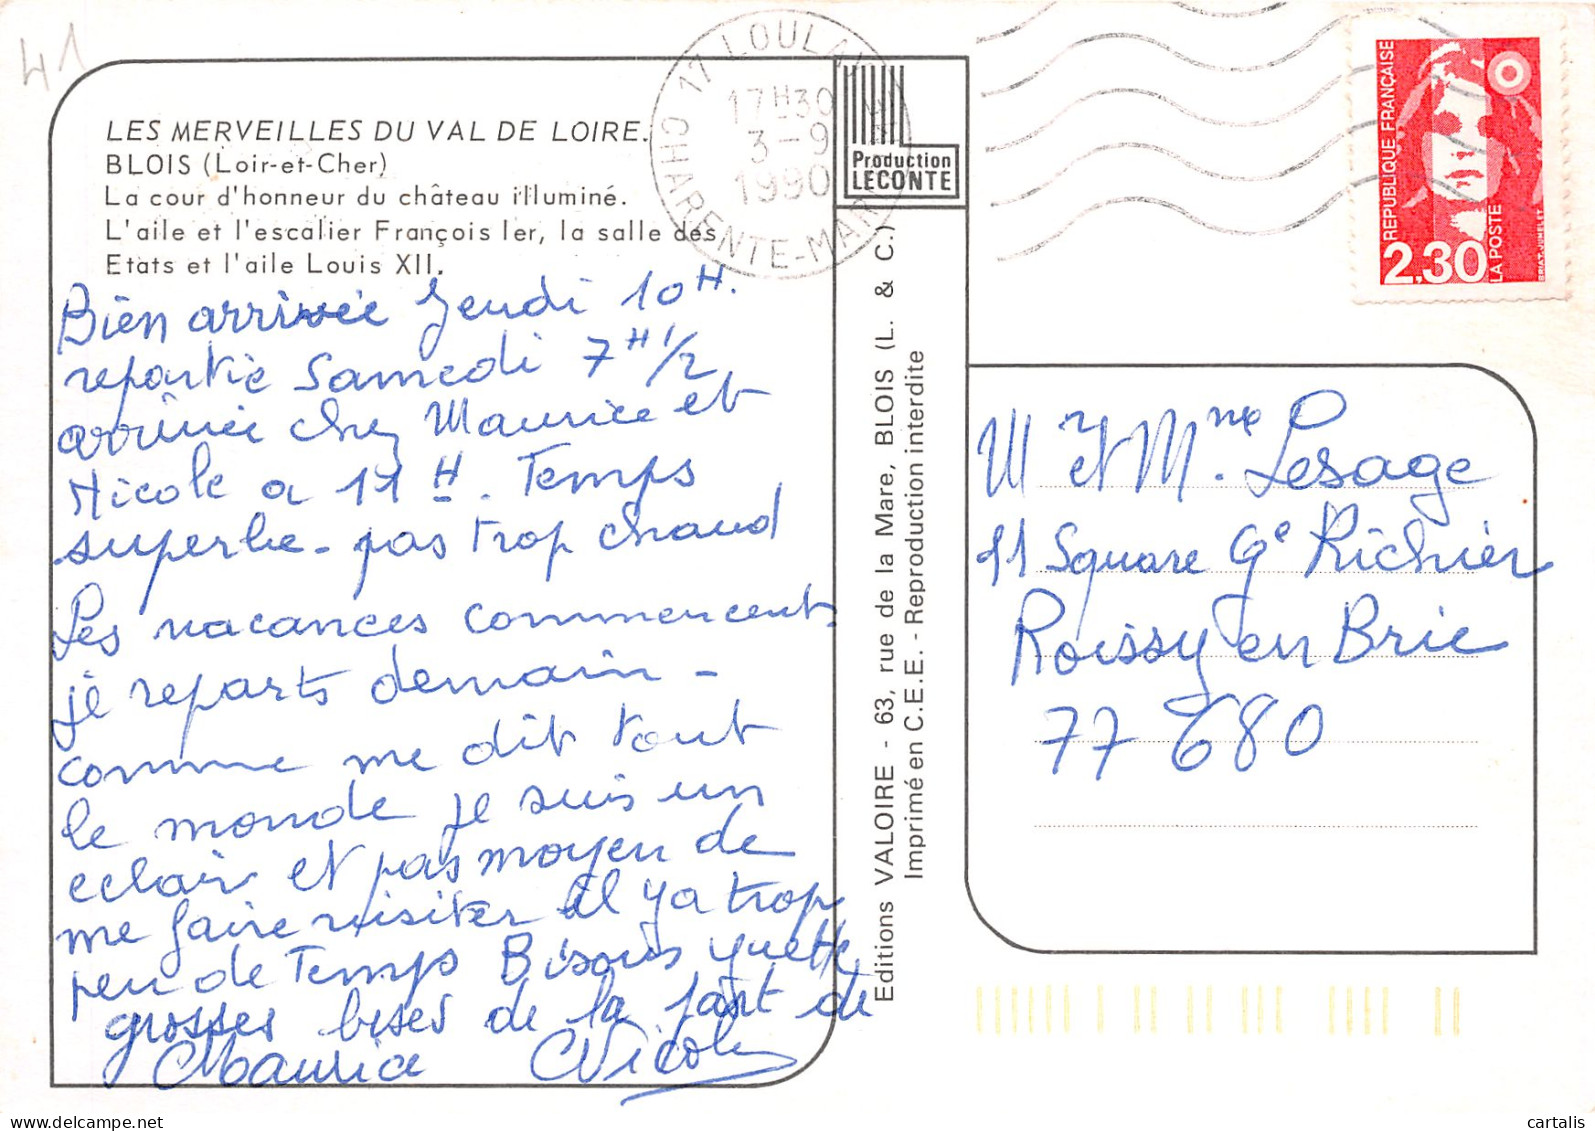 41
LES MERVEILLES DU VAL DE LOIRE.
BLOIS (Loir-et-Cher)
La cour d'honneur du château illuminé.
L'aile et l'escalier François Ier, la salle des
Etats et l'aile Louis XII.
Bien arrivée Jeudi 10H.
repartie Samedi 7H1/2
arrivée chez Maurice et
Nicole a 11H. Temps
superbe - pas trop chaud
Les vacances commencent
je reparts demain -
comme me dit tout
le monde je suis un
eclair et pas moyen de
me faire visiter il y a trop
peu de Temps Bisous yvette
grosses bises de la part de
Maurice Nicole
17 LOULAY
17H30
3-9
1990
CHARENTE-MAR
Production
LECONTE
Editions VALOIRE - 63, rue de la Mare, BLOIS (L. & C.)
Imprimé en C.E.E. - Reproduction interdite
REPUBLIQUE FRANÇAISE
2,30
LA POSTE
BRIAT-JUMELET
M et Mme Lesage
11 Square Ge Richier
Roissy en Brie
77680
www.delcampe.net
cartalis